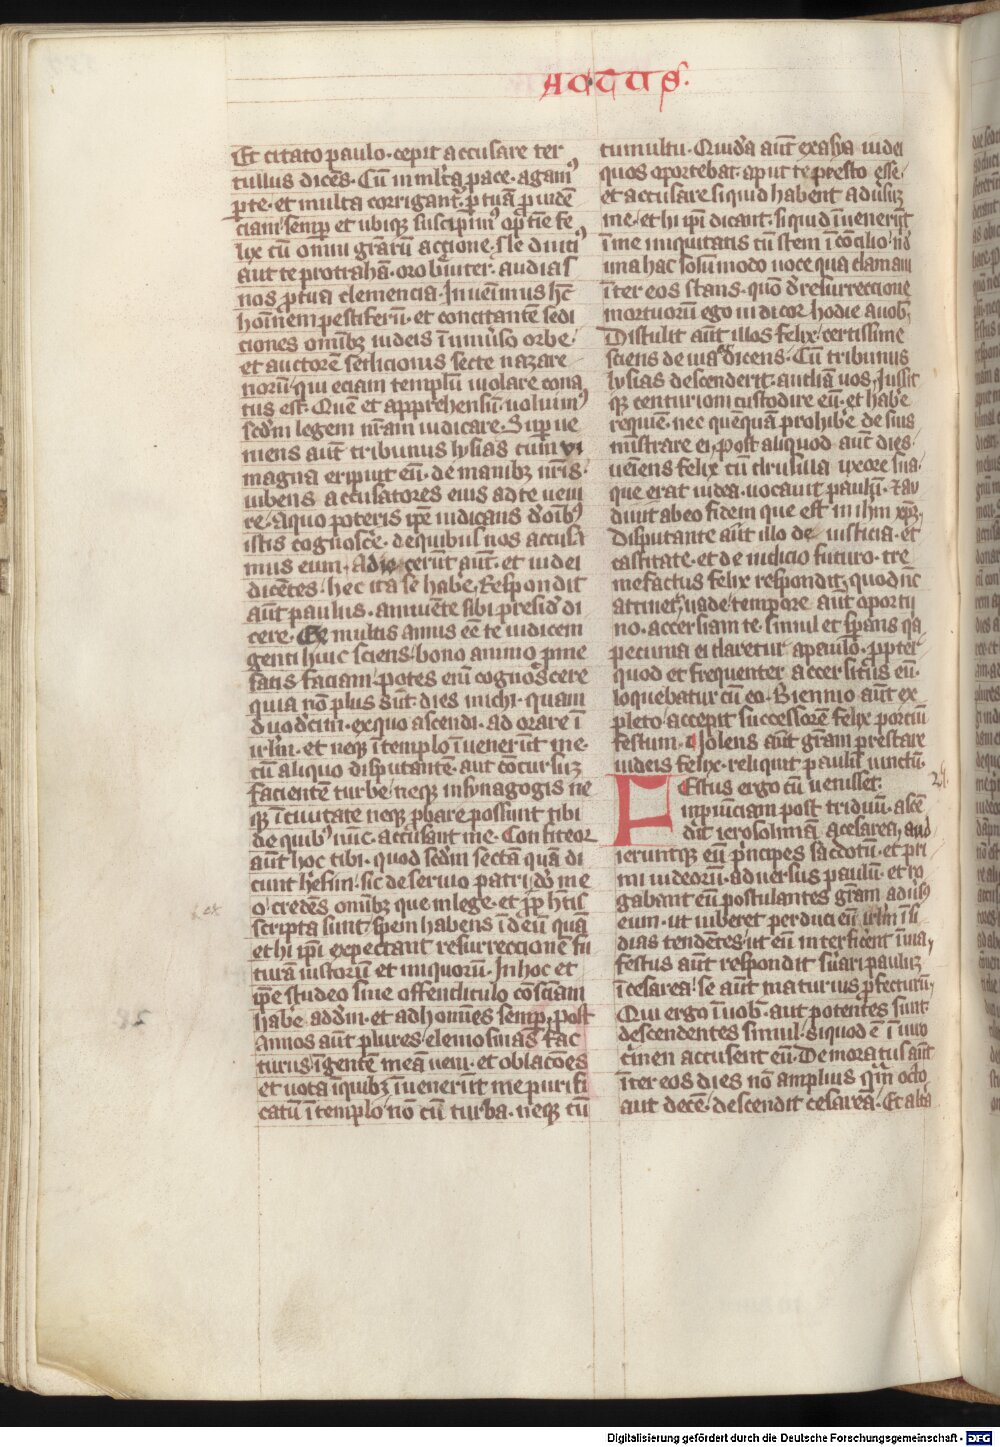 ACTUS.
Et citato paulo. cepit accusare ter
tullus dicēs. Cū in ml̄ta pace. agam9
p̱ te. et multa corrigant̄ p̱ tuā p̱uidē
ciam. semp̱ et ubiqꝫ suscipim9 opti͞e fe
lix cū omni grārū actione. Ne diuti9
aut te protrahā. oro b̄uiter. audias
nos p̱ tua clemencia. Inuenimus h̄c
hoi͞nem pestiferū. et concitantē sedi
ciones omībꝫ iudeis ī uniūso orbe.
et auctorē sedicionis secte nazare
norū. qui eciam templū uiolare cona
tus est. Quē et apprehensū. uoluim9
scdm legem nr̄am iudicare. Sup̱ue
niens aūt tribunus lysias cum vi
magna eripuit eū. de manibꝫ nr̄is.
iubens accusatores eius ad te ueni
re. a quo poteris ip̄e iudicans d' oībꝫ
istis cognosc̄e. de quibus nos accusa
mus eum. Adiecerūt aūt. et iudei
dicētes. hec ita se habe. Respondit
aūt paulus. annuēte sibi presid' di
cere. Ex multis annis eē te iudicem
genti huic sciens. bono animo p̱ me
satis faciam. potes enī cognoscere
quia nō plus sūt dies michi. quam
duodecim. ex quo ascendi. adorare ī
irl̄m. et neqꝫ ī templo īuenerūt me.
cū aliquo disputantē. aut cōcursuꝫ
facientē turbe. neqꝫ in synagogis ne
qꝫ ī ciuitate neqꝫ p̱bare possunt tibi
de quibꝫ nūc accusant me. Confiteor
aūt hoc tibi. quod scdm sectā quā di
cunt h̄esim. sic deseruio patri. dō me
o. credēs omībꝫ que in lege. et pp̄h̄tis
scripta sunt. spem habens ī deū quā
et hi ip̄i expectant resurreccionē fu
turā iustorū et iniquorū. In hoc et
ip̄e studeo sine offendiculo cōsciam
habe add̄m. et ad homīes semp̱. post
annos aūt plures. elemosinas fac
turus. ī gentē meā ueni. et oblacōes
et uota. ī quibꝫ īuenerūt me purifi
catū ī templo. nō cū turba. neqꝫ cū
tumultu. Quidā aūt ex asya iudei
quos oportebat. aput te presto esse.
et accusare si quid habent aduersū
me. et hi ip̄i dicant. si quid īuenerūt
ī me iniquitatis cū stem ī cōcilio. ni
una hac solūmodo uoce qua clamaui
īter eos stans. quō d' resurreccione
mortuorū ego iudicor hodie a uob.
Distulit aūt illos felix. certissime
sciens de uia dicens. Cū tribunus
lysias descenderit. audiā uos. Iussit
qꝫ centurioni custodire eū. et habe
requiē. nec quēquā prohibe de suis
mīstrare ei. Post aliquod aūt dies.
ueiēns felix cū drusilla uxore sua.
que erat iudea. uocauit paulū. et au
diuit ab eo fidem que est in ihm xp̄m.
disputante aūt illo de iusticia. et
castitate. et de iudicio futuro. tre
mefactus felix respondit. quod nc̄
attinet. uade. tempore aūt oportu
no. accersiam te. simul et sp̱ans qa
pecunia ei daretur a paulo. pp̱ter
quod et frequenter accersitus eū.
loquebatur cū eo. Biennio aūt ex
pleto. accepit successorē felix portiū
festum. uolens aūt grām prestare
iudeis felix. reliquit paulū uinctū.
Festus ergo cū uenisset.
in p̱uīciam post triduū. ascē
dit ierosolimā a cesarea. aud
ieruntqꝫ eū p̄ncipes sacdotū. et pri
mi iudeorū. aduersus paulū. et ro
gabant eū postulantes grām adūsꝫ
eum. ut iuberet perduci eū irlm īsi
dias tendētes. ut eū interficēnt ī uia.
festus aūt respondit s̄uari pauluꝫ
ī cesarea. se aūt maturius p̱fecturū.
Qui ergo ī uob. aut potentes sunt.
descendentes simul. si quod ē ī uiro
c̄men accusent eū. Demoratus aūt
īter eos dies nō amplius qm̄ octo
aut decē. descendit cesareā. Et altā
Digitalisierung gefördert durch die Deutsche Forschungsgemeinschaft - DFG